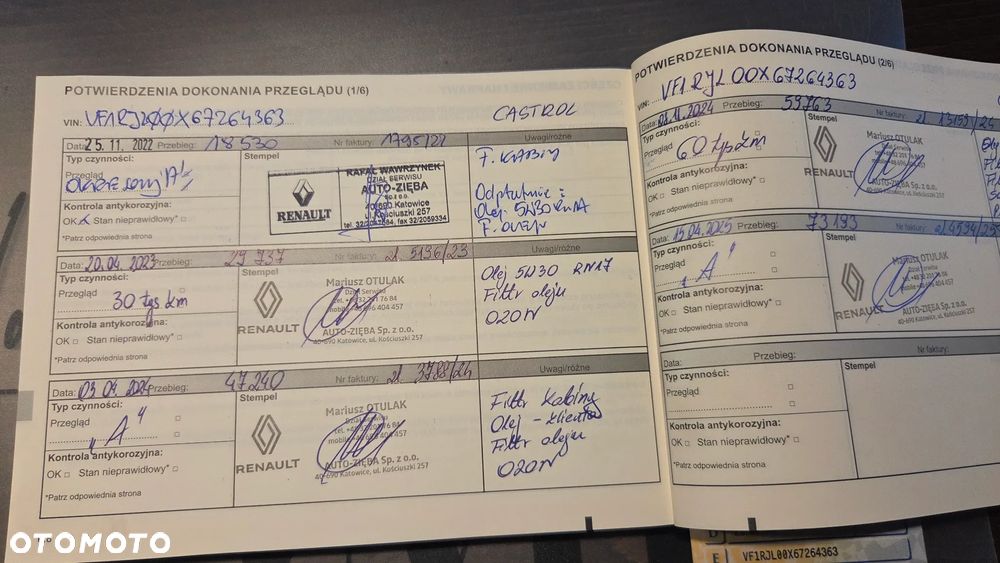 POTWIERDZENIA DOKONANIA PRZEGLĄDU (1/6)
VIN: VF1RJL00X67264363
CASTROL
Data: 25.11.2022 Przebieg: 18530 Nr faktury: 1795/22 Uwagi/różne
Typ czynności: Stempel
Przegląd
Okresowy "A"
Kontrola antykorozyjna:
OK Stan nieprawidłowy*
*Patrz odpowiednia strona
RENAULT
RAFAŁ WAWRZYNEK
DZIAŁ SERWISU
AUTO-ZIĘBA
sp. z o.o.
40-690 Katowice
ul. Kościuszki 257
F. KABINY
Olej 5W30
F. OLEJU
Data: 20.04.2023 Przebieg: 29737 Nr faktury: zl. 5136/23 Uwagi/różne
Typ czynności: Stempel
Przegląd
30 tys km
Kontrola antykorozyjna:
OK Stan nieprawidłowy*
*Patrz odpowiednia strona
RENAULT
Mariusz OTULAK
Dział Serwisu
AUTO-ZIĘBA Sp. z o.o.
40-690 Katowice, ul. Kościuszki 257
Olej 5W30 RN17
Filtr oleju
O2OW
Data: 03.04.2024 Przebieg: 47240 Nr faktury: zl. 3788/24 Uwagi/różne
Typ czynności: Stempel
Przegląd
"A"
Kontrola antykorozyjna:
OK Stan nieprawidłowy*
*Patrz odpowiednia strona
RENAULT
Mariusz OTULAK
Dział Serwisu
AUTO-ZIĘBA Sp. z o.o.
40-690 Katowice, ul. Kościuszki 257
Filtr Kabiny
Olej - klienta
Filtr oleju
O2OW
POTWIERDZENIA DOKONANIA PRZEGLĄDU (2/6)
VIN: VF1RJL00X67264363
Data: Przebieg: 59763 Nr faktury:
Typ czynności: Stempel
Przegląd
60 tys km
Kontrola antykorozyjna:
OK Stan nieprawidłowy*
*Patrz odpowiednia strona
RENAULT
Mariusz OTULAK
Dział Serwisu
AUTO-ZIĘBA Sp. z o.o.
40-690 Katowice, ul. Kościuszki 257
Data: 15.04.2025 Przebieg: 73193 Nr faktury:
Typ czynności: Stempel
Przegląd
"A"
Kontrola antykorozyjna:
OK Stan nieprawidłowy*
*Patrz odpowiednia strona
RENAULT
Mariusz OTULAK
Dział Serwisu
AUTO-ZIĘBA Sp. z o.o.
40-690 Katowice, ul. Kościuszki 257
Data: Przebieg: Nr faktury:
Typ czynności: Stempel
Przegląd
Kontrola antykorozyjna:
OK Stan nieprawidłowy*
*Patrz odpowiednia strona
VF1RJL00X67264363
OTOMOTO